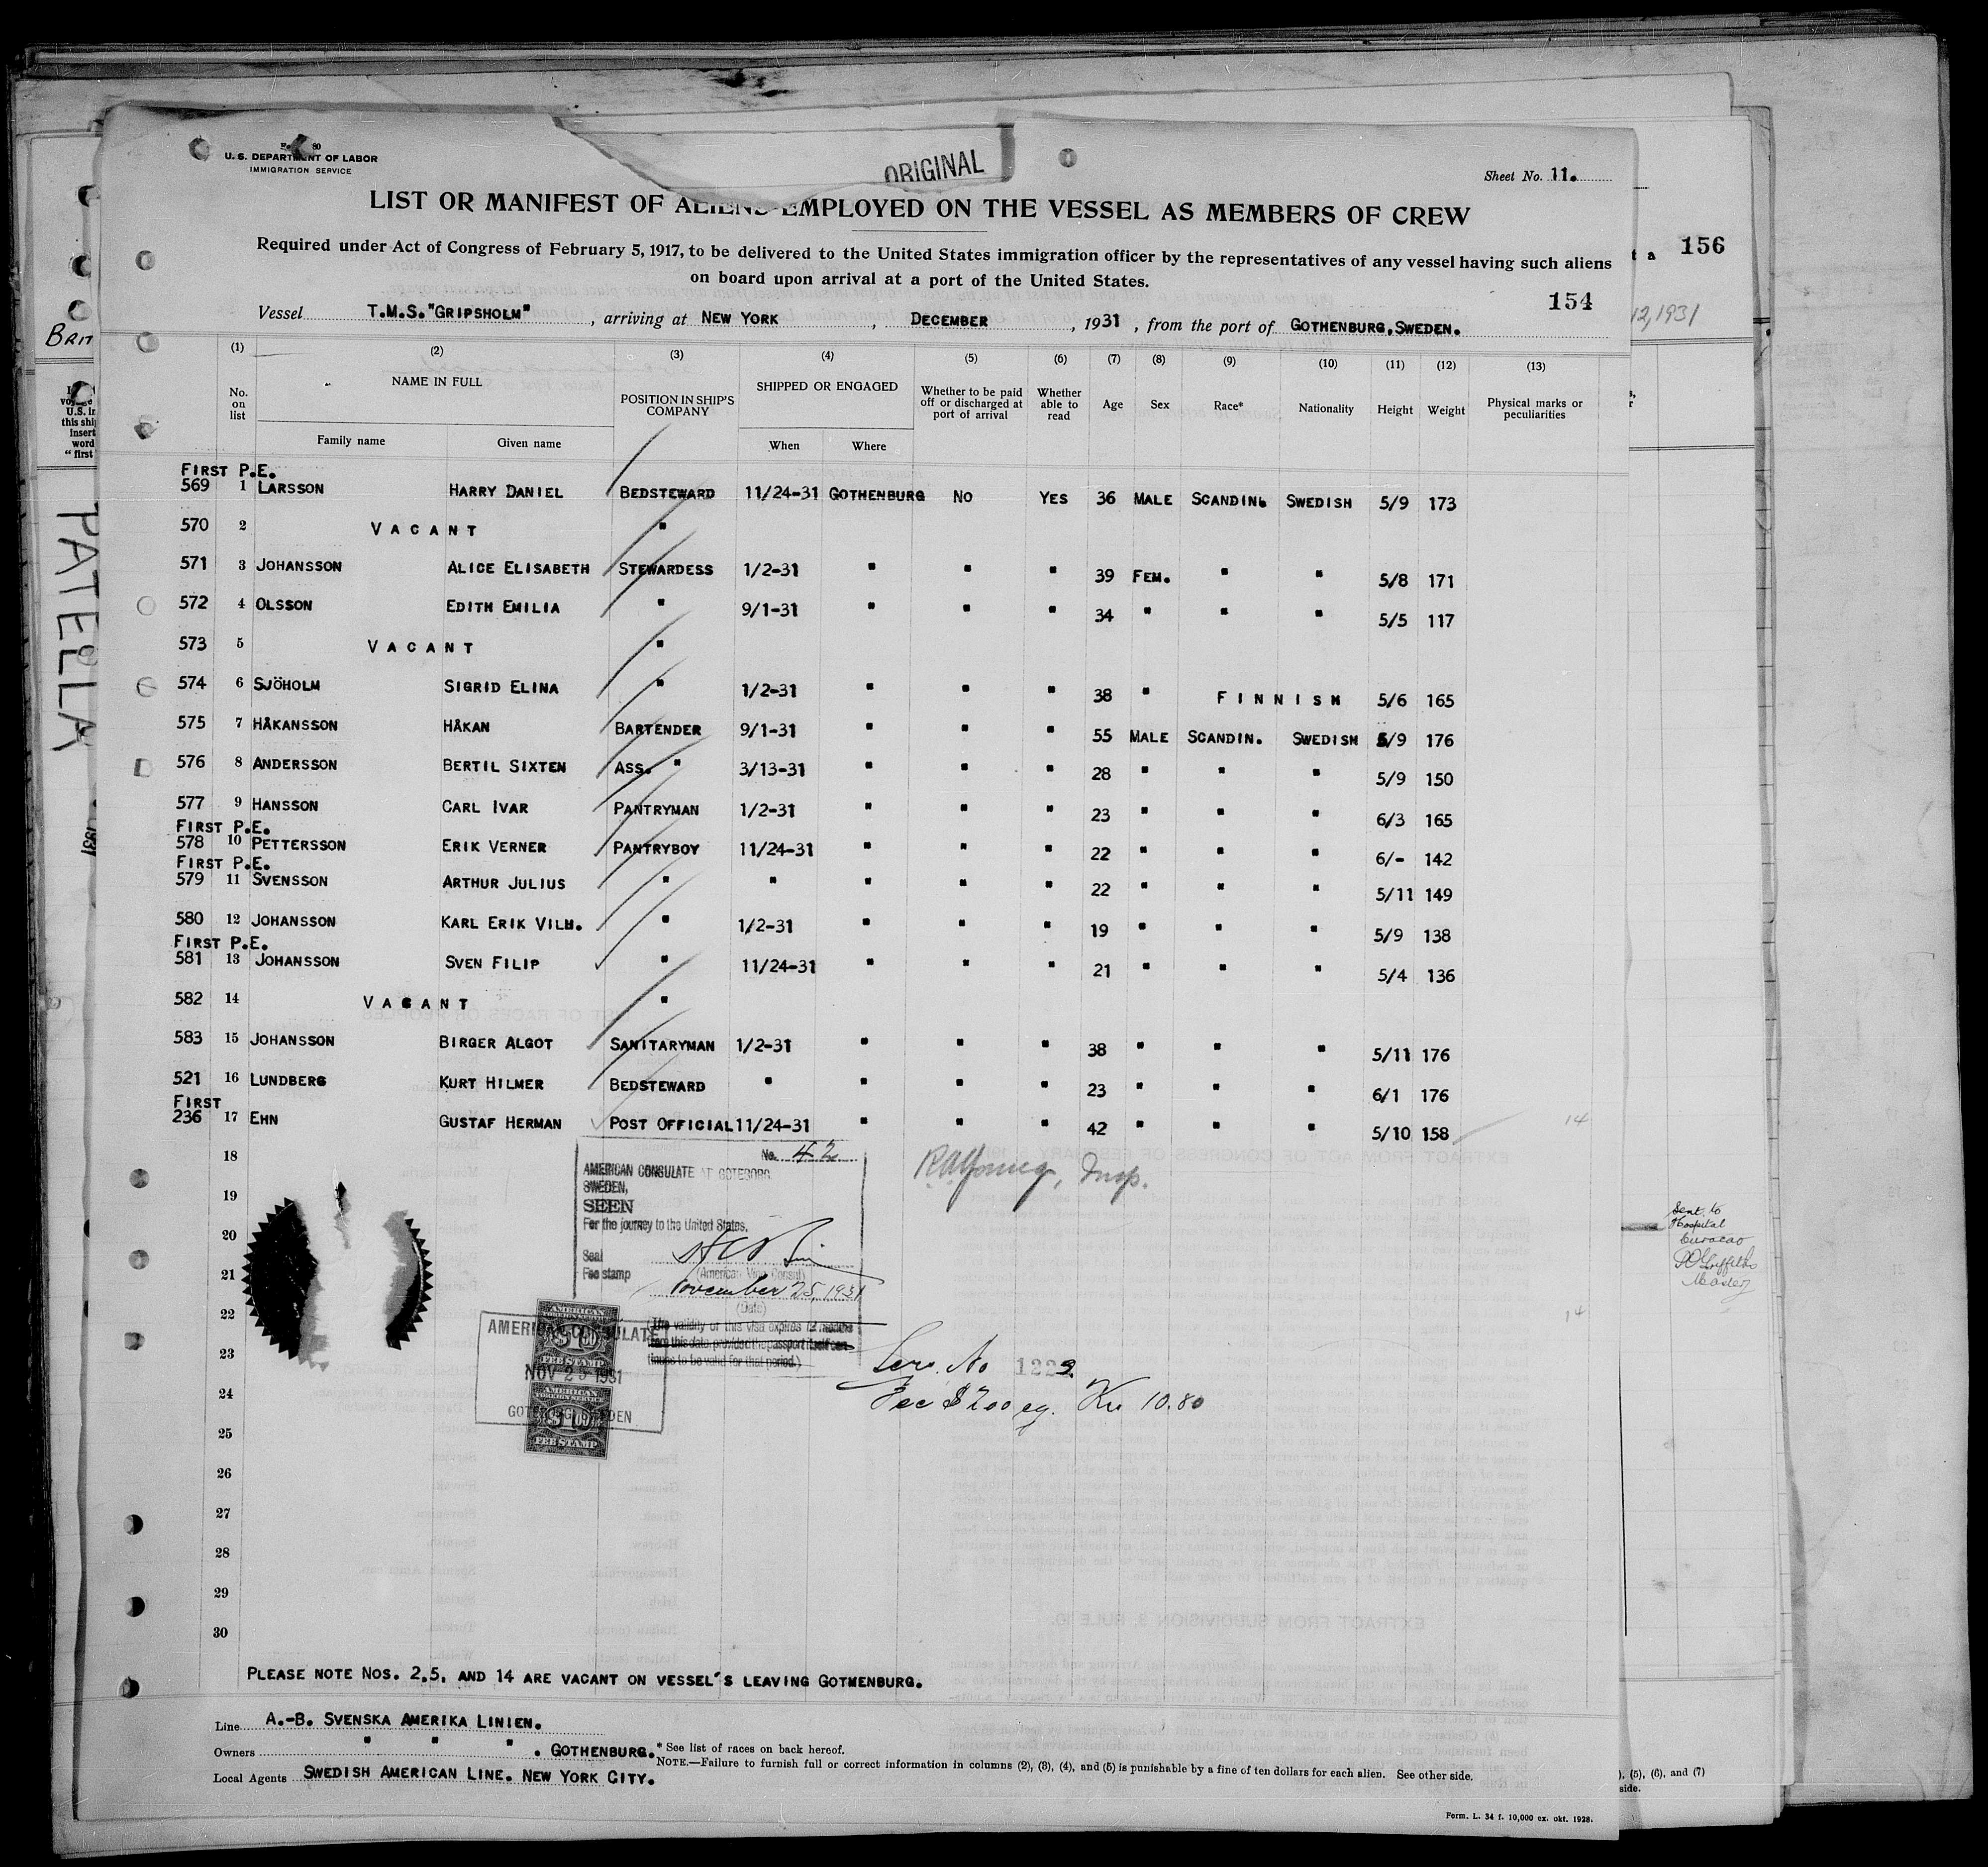 U. S. DEPARTMENT OF LABOR
IMMIGRATION SERVICE
ORIGINAL
Sheet No. 11.
LIST OR MANIFEST OF ALIENS EMPLOYED ON THE VESSEL AS MEMBERS OF CREW
Required under Act of Congress of February 5, 1917, to be delivered to the United States immigration officer by the representatives of any vessel having such aliens
on board upon arrival at a port of the United States.
156
154
Vessel T.M.S. "GRIPSHOLM", arriving at NEW YORK, DECEMBER, 1931, from the port of GOTHENBURG, SWEDEN.
12, 1931
BRIT
PATELLA
1931
(1) (2) (3) (4) (5) (6) (7) (8) (9) (10) (11) (12) (13)
No. on list NAME IN FULL POSITION IN SHIP'S COMPANY SHIPPED OR ENGAGED Whether to be paid off or discharged at port of arrival Whether able to read Age Sex Race* Nationality Height Weight Physical marks or peculiarities
Family name Given name When Where
FIRST P.E.
569 1 LARSSON HARRY DANIEL BEDSTEWARD 11/24-31 GOTHENBURG NO YES 36 MALE SCANDIN. SWEDISH 5/9 173
570 2 VACANT "
571 3 JOHANSSON ALICE ELISABETH STEWARDESS 1/2-31 " " " 39 FEM. " " 5/8 171
572 4 OLSSON EDITH EMILIA " 9/1-31 " " " 34 " " " 5/5 117
573 5 VACANT "
574 6 SJÖHOLM SIGRID ELINA " 1/2-31 " " " 38 " FINNISH 5/6 165
575 7 HÅKANSSON HÅKAN BARTENDER 9/1-31 " " " 55 MALE SCANDIN. SWEDISH 5/9 176
576 8 ANDERSSON BERTIL SIXTEN ASS. " 3/13-31 " " " 28 " " " 5/9 150
577 9 HANSSON CARL IVAR PANTRYMAN 1/2-31 " " " 23 " " " 6/3 165
FIRST P.E.
578 10 PETTERSSON ERIK VERNER PANTRYBOY 11/24-31 " " " 22 " " " 6/- 142
FIRST P.E.
579 11 SVENSSON ARTHUR JULIUS " " " " " 22 " " " 5/11 149
580 12 JOHANSSON KARL ERIK VILH. " 1/2-31 " " " 19 " " " 5/9 138
FIRST P.E.
581 13 JOHANSSON SVEN FILIP " 11/24-31 " " " 21 " " " 5/4 136
582 14 VACANT "
583 15 JOHANSSON BIRGER ALGOT SANITARYMAN 1/2-31 " " " 38 " " " 5/11 176
521 16 LUNDBERG KURT HILMER BEDSTEWARD " " " " 23 " " " 6/1 176
FIRST
236 17 EHN GUSTAF HERMAN POST OFFICIAL 11/24-31 " " " 42 " " " 5/10 158 14
18
19
20
21
22 14
23
24
25
26
27
28
29
30
No. 42
AMERICAN CONSULATE AT GOTEBORG
SWEDEN,
SEEN
For the journey to the United States.
Seal
Fee stamp (American Vice Consul)
November 25, 1931
(Date)
(The validity of this visa expires 12 months
from this date provided the passport itself con-
tinues to be valid for that period.)
Insp.
AMERICAN CONSULATE
NOV 25 1931
GOTEBORG, SWEDEN
AMERICAN
FOREIGN SERVICE
$1.00
FEE STAMP
AMERICAN
FOREIGN SERVICE
$1.00
FEE STAMP
Serv. No 1222
Fee $2.00 eq. Kr 10.80
Sent to
Hospital
Curacao
Master
PLEASE NOTE NOS. 2,5, AND 14 ARE VACANT ON VESSEL'S LEAVING GOTHENBURG.
Line A.-B. SVENSKA AMERIKA LINIEN.
Owners " " " . GOTHENBURG.
* See list of races on back hereof.
NOTE.—Failure to furnish full or correct information in columns (2), (3), (4), and (5) is punishable by a fine of ten dollars for each alien. See other side.
Local Agents SWEDISH AMERICAN LINE. NEW YORK CITY.
), (5), (6), and (7)
side.
Form. L. 34 f. 10,000 ex. okt. 1928.